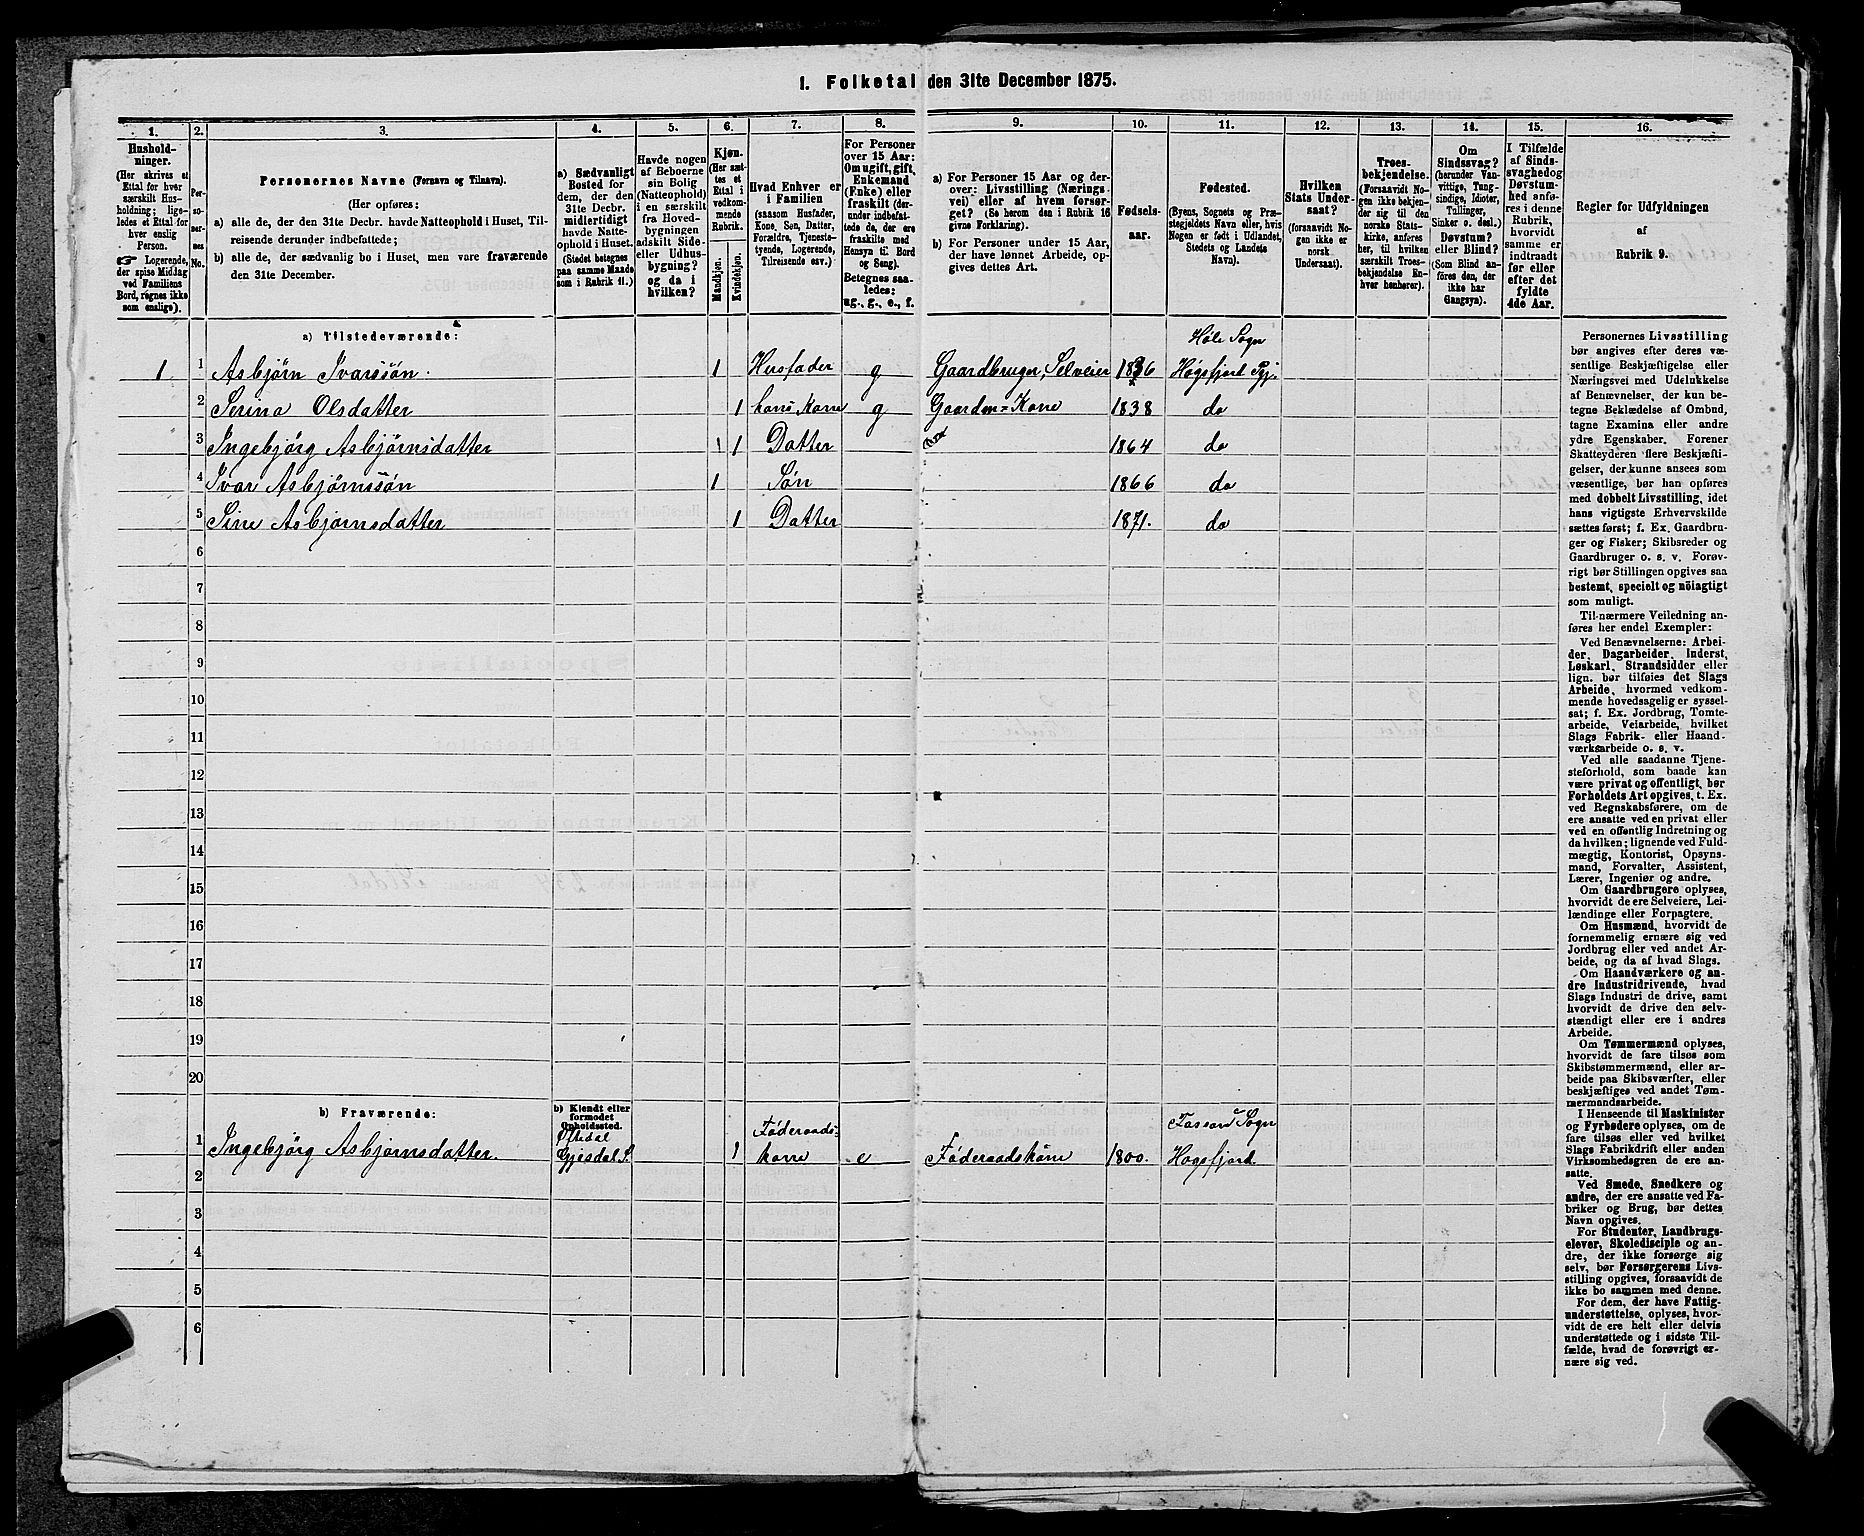 1. Folketal den 31te December 1875.
1. 2. 3. 4. 5. 6. 7. 8. 9. 10. 11. 12. 13. 14. 15. 16.
Hushold-
ninger.
(Her skrives et
Ettal for hver
særskilt Hus-
holdning; lige-
ledes et Ettal for
hver enslig
Person.
☛ Logerende,
der spise Middag
ved Familiens
Bord, regnes ikke
som enslige).
Per-
so-
ner-
nes
No.
Personernes Navne (Fornavn og Tilnavn).
(Her opføres:
a) alle de, der den 31te Decbr. havde Natteophold i Huset, Til-
reisende derunder indbefattede;
b) alle de, der sædvanlig bo i Huset, men vare fraværende
den 31te December.
a) Sædvanligt
Bosted for
dem, der den
31te Decbr.
midlertidigt
havde Natte-
ophold i Huset.
(Stedet betegnes
paa samme Maade
som i Rubrik 11.)
Havde nogen
af Beboerne
sin Bolig
(Natteophold)
i en særskilt
fra Hoved-
bygningen
adskilt Side-
eller Udhus-
bygning?
og da i
hvilken?
Kjøn.
(Her sæt-
tes et
Ettal i
vedkom-
mende
Rubrik.
Mandkjøn.
Kvindekjøn.
Hvad Enhver er
i Familien
(saasom Husfader,
Kone, Søn, Datter,
Forældre, Tjeneste-
tyende, Logerende,
Tilreisende osv.)
For Personer
over 15 Aar:
Om ugift, gift,
Enkemand
(Enke) eller
fraskilt (der-
under indbefat-
tede de, der ere
fraskilte med
Hensyn til Bord
og Seng).
Betegnes saa-
ledes:
ug., g., e., f.
a) For Personer 15 Aar og der-
over: Livsstilling (Nærings-
vei) eller af hvem forsør-
get? (Se herom den i Rubrik 16
givne Forklaring).
b) For Personer under 15 Aar,
der have lønnet Arbeide, op-
gives dettes Art.
Fødsels-
aar.
Fødested.
(Byens, Sognets og Præ-
stegjeldets Navn eller, hvis
Nogen er født i Udlandet,
Stedets og Landets
Navn).
Hvilken
Stats Under-
saat?
(forsaavidt No-
gen ikke er
norsk
Undersaat).
Troes-
bekjendelse.
(Forsaavidt No-
gen ikke bekjen-
der sig til den
norske Stats-
kirke, anføres
her, til hvilken
særskilt Troes-
bekjendelse En-
hver henhører).
Om
Sindssvag?
(herunder Van-
vittige, Tung-
sindige, Idioter,
Tullinger,
Sinker o. desl.)
Døvstum?
eller Blind?
(Som Blind an-
føres den, der
ikke har
Gangsyn).
I Tilfælde
af Sinds-
svaghed og
Døvstum-
hed anfø-
res i denne
Rubrik,
hvorvidt
samme er
indtraadt
før eller
efter det
fyldte
4de Aar.
Regler for Udfyldningen
af
Rubrik 9.
a) Tilstedeværende:
Høle Sogn
1 1 Asbjørn Ivarssøn. 1 Husfader g Gaardbruger, Selveier 1836 Høgsfjord Pgj.
2 Serina Olsdatter 1 hans Kone g Gaardm=Kone 1838 do
3 Ingebjørg Asbjørnsdatter 1 Datter 1864 do
4 Ivar Asbjørnssøn 1 Søn 1866 do
5 Sine Asbjørnsdatter 1 Datter 1871. do
6
7
8
9
10
11
12
13
14
15
16
17
18
19
20
b) Fraværende:
b) Kjendt eller
formodet
Opholdssted.
Føderaads-
Sogn
1 Ingebjørg Asbjørnsdatter. Gjesdal. 1 kone e Føderaadskone 1800. Høgsfjord.
2
3
4
5
6
Personernes Livsstilling
bør angives efter deres væ-
sentlige Beskjæftigelse eller
Næringsvei med Udelukkelse
af Benævnelser, der kun be-
tegne Beklædelse af Ombud,
tagne Examina eller andre
ydre Egenskaber. Forener
Skatteyderen flere Beskjæfti-
gelser, der kunne ansees som
væsentlige, bør han opføres
med dobbelt Livsstilling, idet
hans vigtigste Erhvervskilde
sættes først; f. Ex. Gaardbru-
ger og Fisker; Skibsreder og
Gaardbruger o. s. v. Forøv-
rigt bør Stillingen opgives saa
bestemt, specielt og nöiagtigt
som muligt.
Til nærmere Veiledning an-
føres her endel Exempler:
Ved Benævnelserne: Arbei-
der, Dagarbeider, Inderst,
Løskarl, Strandsidder eller
lign. bør tilføies det Slags
Arbeide, hvormed vedkom-
mende hovedsagelig er syssel-
sat; f. Ex. Jordbrug, Tomte-
arbeide, Veiarbeide, hvilket
Slags Fabrik- eller Haand-
værksarbeide o. s. v.
Ved alle saadanne Tjene-
steforhold, som baade kan
være privat og offentligt, bør
Forholdets Art opgives, t. Ex.
ved Regnskabsførere, om de
ere ansatte ved en privat eller
ved en offentlig Indretning og
da hvilken; lignende ved Fuld-
mægtig, Kontorist, Opsyns-
mand, Forvalter, Assistent,
Lærer, Ingeniør og andre.
Om Gaardbrugere oplyses,
hvorvidt de ere Selveiere, Lei-
lændinge eller Forpagtere.
Om Husmænd, hvorvidt de
fornemmelig ernære sig ved
Jordbrug eller ved andet Ar-
beide, og da af hvad Slags.
Om Haandværkere og an-
dre Industridrivende, hvad
Slags Industri de drive, samt
hvorvidt de drive den selv-
stændigt eller ere i andres
Arbeide.
Om Tømmermænd oplyses,
hvorvidt de fare tilsøs som
Skibstømmermænd, eller ar-
beide paa Skibsværfter, eller
beskjæftiges ved andet Tøm-
mermandsarbeide.
I Henseende til Maskinister
og Fyrbødere oplyses, om de
fare tilsøs eller ved hvilket
Slags Fabrikdrift eller anden
Virksomhedsgren de ere an-
satte.
Ved Smede, Snedkere og
andre, der ere ansatte ved Fa-
briker og Brug, bør dettes
Navn opgives.
For Studenter, Landbrugs-
elever, Skoledisciple og an-
dre, der ikke forsørge sig
selv, bør Forsørgerens Livs-
stilling opgives, forsaavidt de
ikke bo sammen med denne.
For dem, der have Fattig-
understøttelse, oplyses, hvor-
vidt de ere helt eller delvis
understøttede og i sidste Til-
fælde, hvad de forøvrigt er-
nære sig ved.